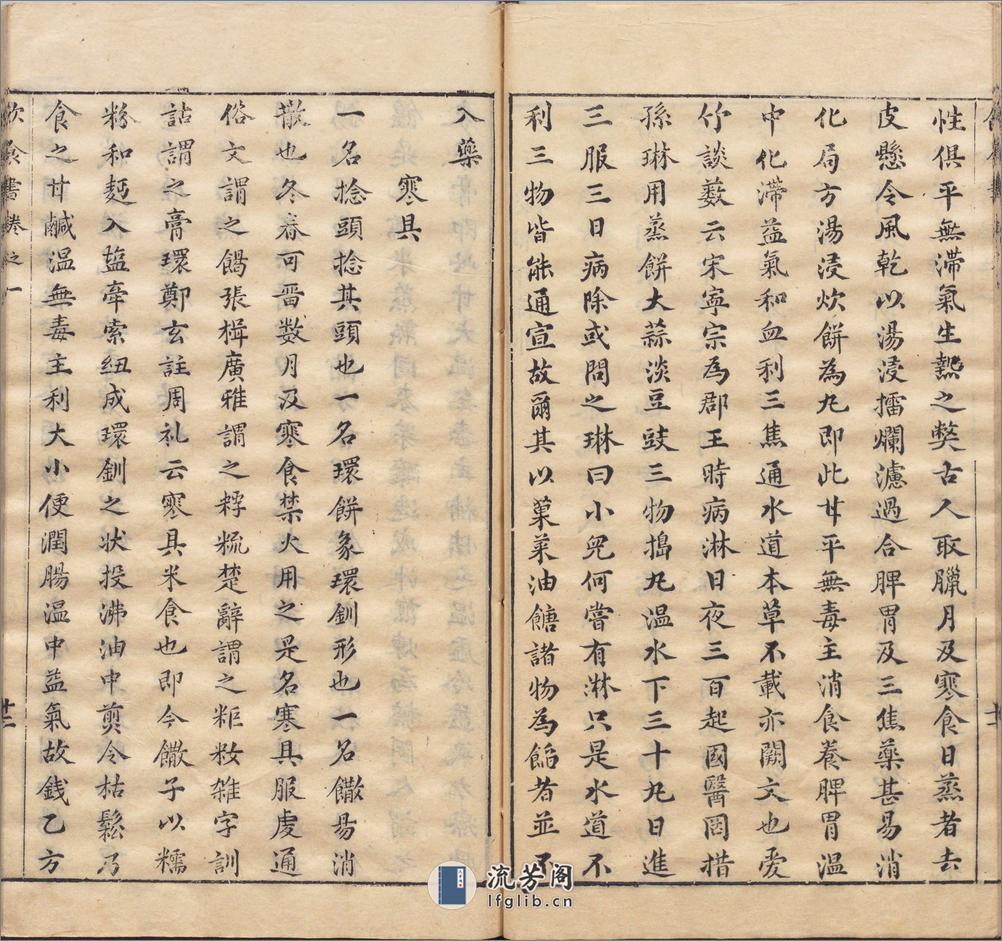 性俱平無滯氣生熱之獘古人取臘月及寒食日蒸者去
皮懸令風乾以湯浸擂爛濾過合脾胃及三焦藥甚易消
化局方湯浸炊餅為丸即此甘平無毒主消食養脾胃温
中化滯益氣和血利三焦通水道本草不載亦闕文也爱
竹談藪云宋寧宗為郡王時病淋日夜三百起國醫罔措
孫琳用蒸餅大蒜淡豆豉三物搗丸温水下三十丸日進
三服三日病除或問之琳曰小兒何嘗有淋只是水道不
利三物皆能通宣故爾其以菓菜油餹諸物為餡者並不
入藥
寒具
一名捻頭捻其頭也一名環餅象環釧形也一名饊易消
散也冬春可畱数月及寒食禁火用之是名寒具服虔通
俗文謂之餲張楫廣雅謂之粰䊗楚辭謂之粔籹雑字訓
詁謂之膏環鄭玄註周礼云寒具米食也即今饊子以糯
粉和麪入盐牵索纽成環釧之状投沸油中煎令枯鬆乃
食之甘鹹温無毒主利大小便潤腸温中益氣故錢乙方
飲食書卷之一
流芳阁
lfglib.cn